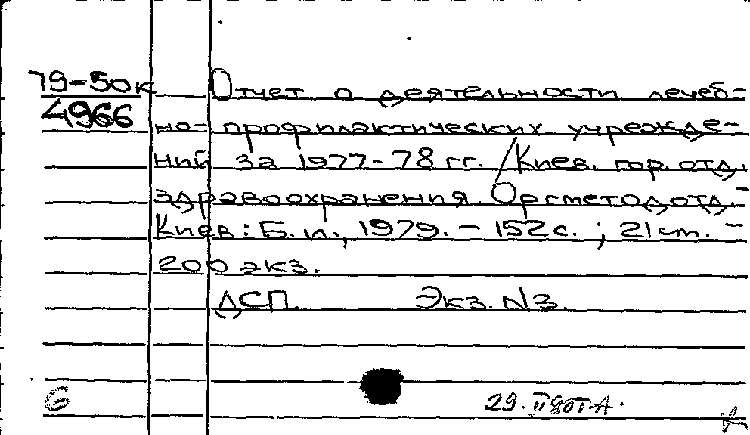 79-50к
4966
Отчет о деятельности лечеб-
но-профилактических учрежде-
ний за 1977-78 гг. / Киев. гор. отд.
здравоохранения. Оргметодотд. -
Киев: Б. и., 1979. - 152 с. ; 21 см. -
200 экз.
ДСП. Экз. N3.
б
29.